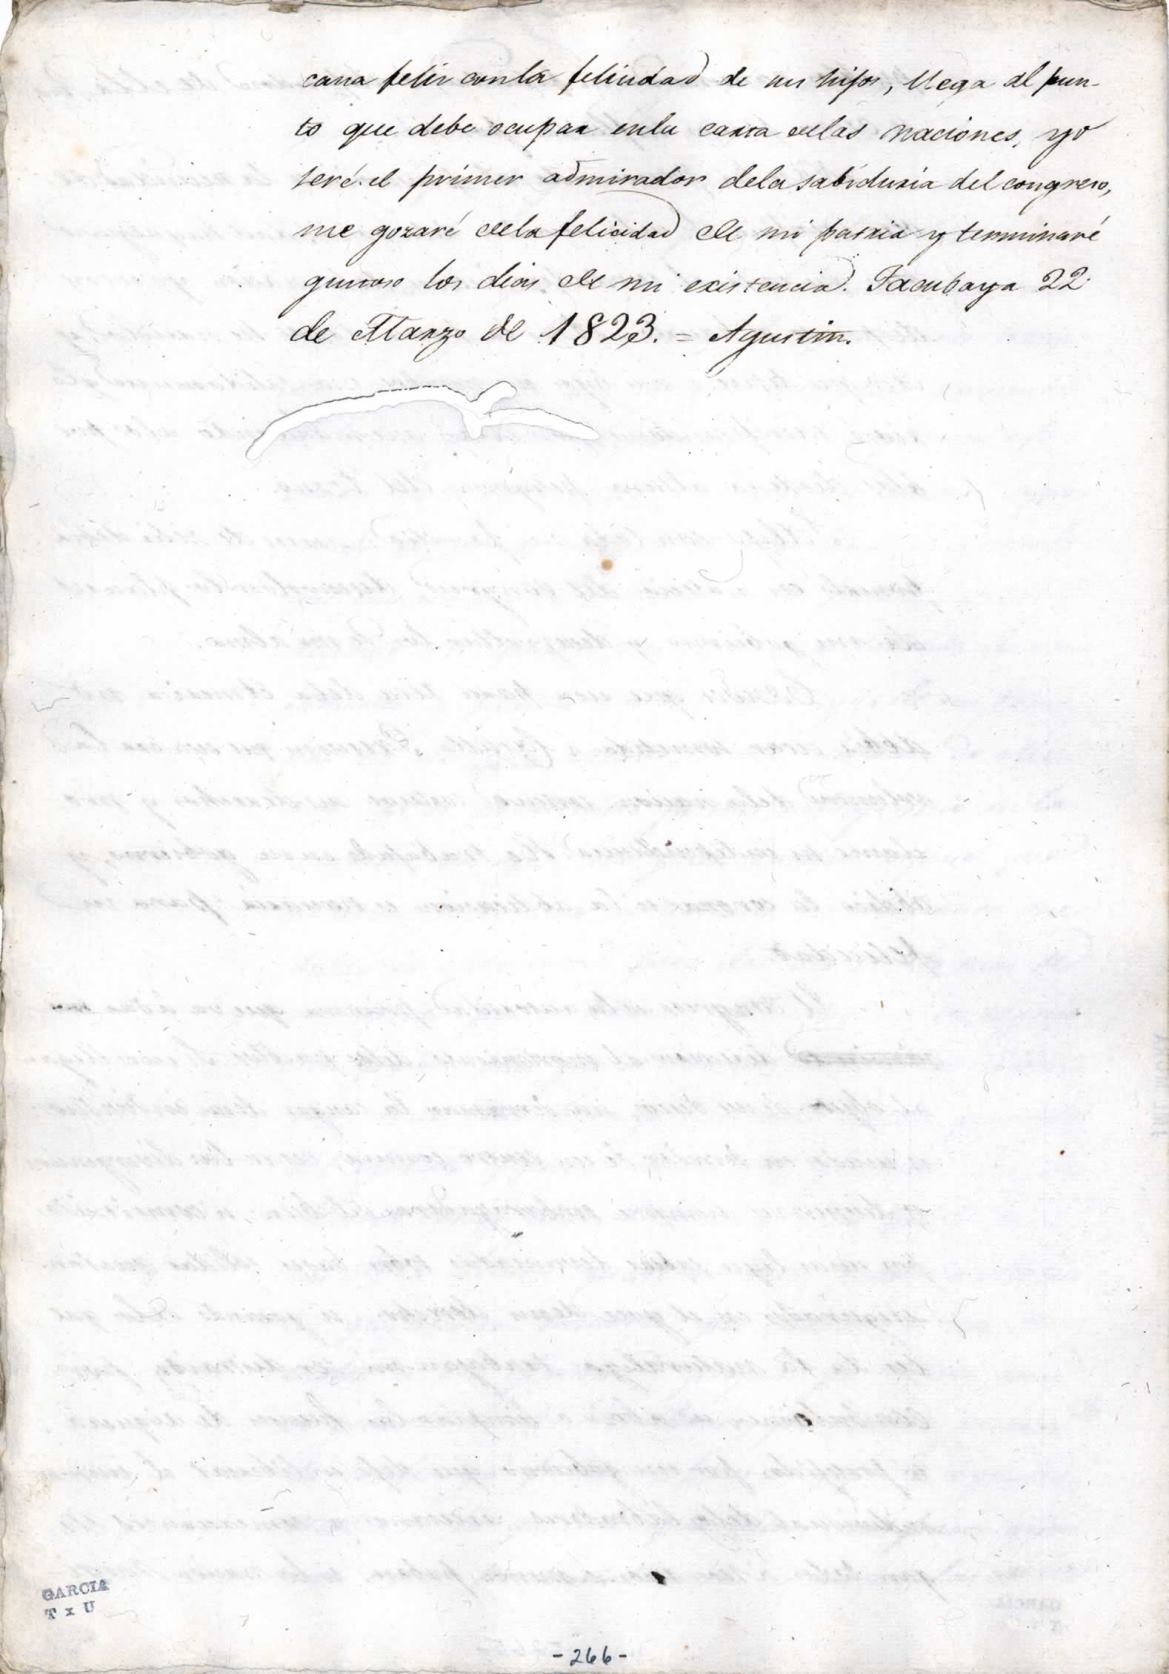 cana feliz conla felicidad de sus hijos, llega al pun-
to que debe ocupar enla carta delas naciones, yo
seré el primer admirador dela sabiduria del congreso,
me gozaré dela felicidad de mi patria y terminaré
gustoso los dias de mi existencia. Tacubaya 22
de Marzo de 1823. = Agustin.
GARCIA
T x U
-266-